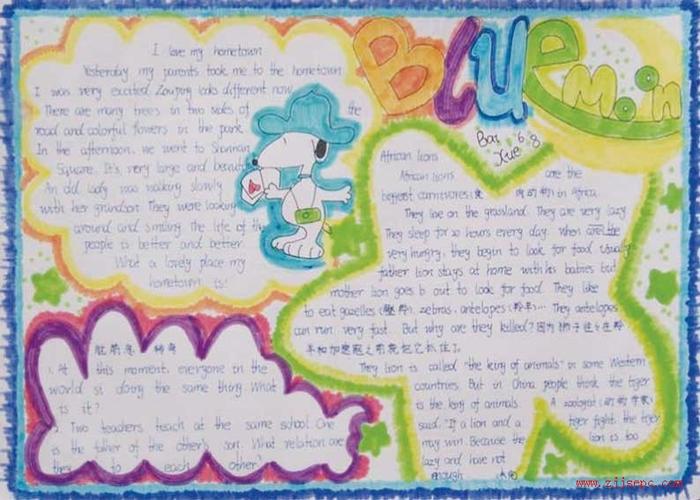 I love my hometown
Yesterday my parents took me to the hometown
I was very excited Zouping looks different now.
There are many trees in two sides of the
road and colorful flowers in the park.
In the afternoon, we went to
Square. It's very large and beautiful
An old lady was walking slowly
with her grandson They were looking
around and smiling the life of the
people is better and better.
What a lovely place my
hometown is!
BLUe Moon
Bai Xue 6.8
African lions
African lions are the
biggest carnivores in Africa.
They live on the grassland. They are very lazy
They sleep for 20 hours every day. When are the
very hungry, they begin to look for food. Usually
father lion stays at home with his babies but
mother lion goes out to look for food. They like
to eat gazelles zebras, antelopes (羚羊)... They antelopes
can run very fast. But why are they killed? 因为狮子往往在羚
羊和加速跑之前就把它抓住了。
They lion is called "the king of animals" in some Western
countries. But in China people think the tiger
is the king of animals. A zoologist (动物学家)
said: "If a lion and a tiger fight. the tiger
may win. Because the lion is too
lazy and have not
enough
脑筋急转弯
1. At this moment, everyone in the
world si doing the same thing. What
is it?
2. Two teachers teach at the same school. One
is the father of the other's son. What relation are
they to each other?
www.zjjsepc.com